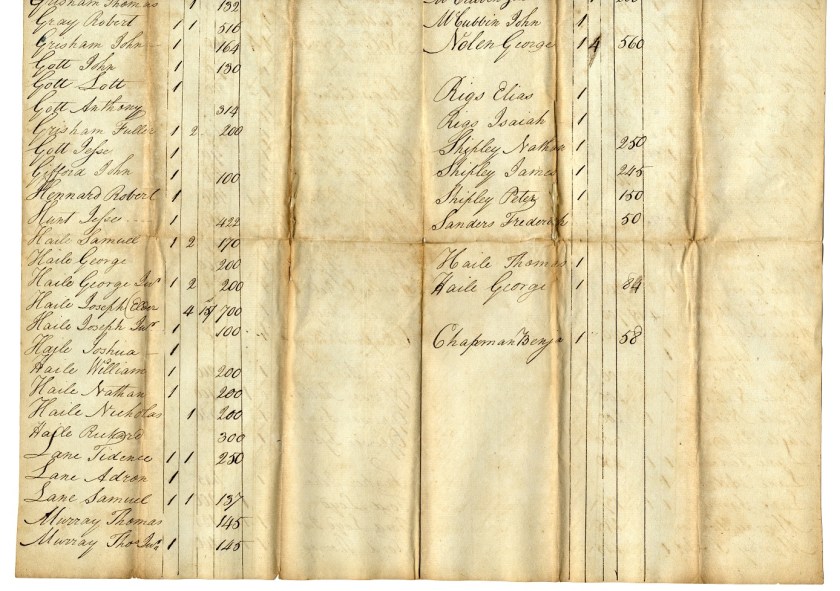 Grisham Thomas 1 132
Gray Robert 1 1 516
Grisham John 1 164
Gott John 1 130
Gott Lott 1
Gott Anthony 314
Grisham Fuller 1 2 200
Gott Jesse 1
Gifford John 1 100
Hennard Robert 1
Hunt Jesse 1 422
Haile Samuel 1 2 170
Haile George 200
Haile George Junr 1 2 200
Haile Joseph Elder 4 700
Haile Joseph Junr 1 100
Haile Joshua 1
Haile William 1 200
Haile Nathan 1 200
Haile Nicholas 1 200
Haile Richard 300
Lane Tidence 1 1 250
Lane Adron 1
Lane Samuel 1 1 137
Murray Thomas 145
Murray Thos Junr 1 145
McCubbin John 1
Nolen George 1 4 560
Rigs Elias 1
Rigs Isaiah 1
Shipley Nathan 1 250
Shipley James 1 245
Shipley Peter 1 150
Sanders Frederick 50
Haile Thomas 1
Haile George 1 84
Chapman Benja 1 58